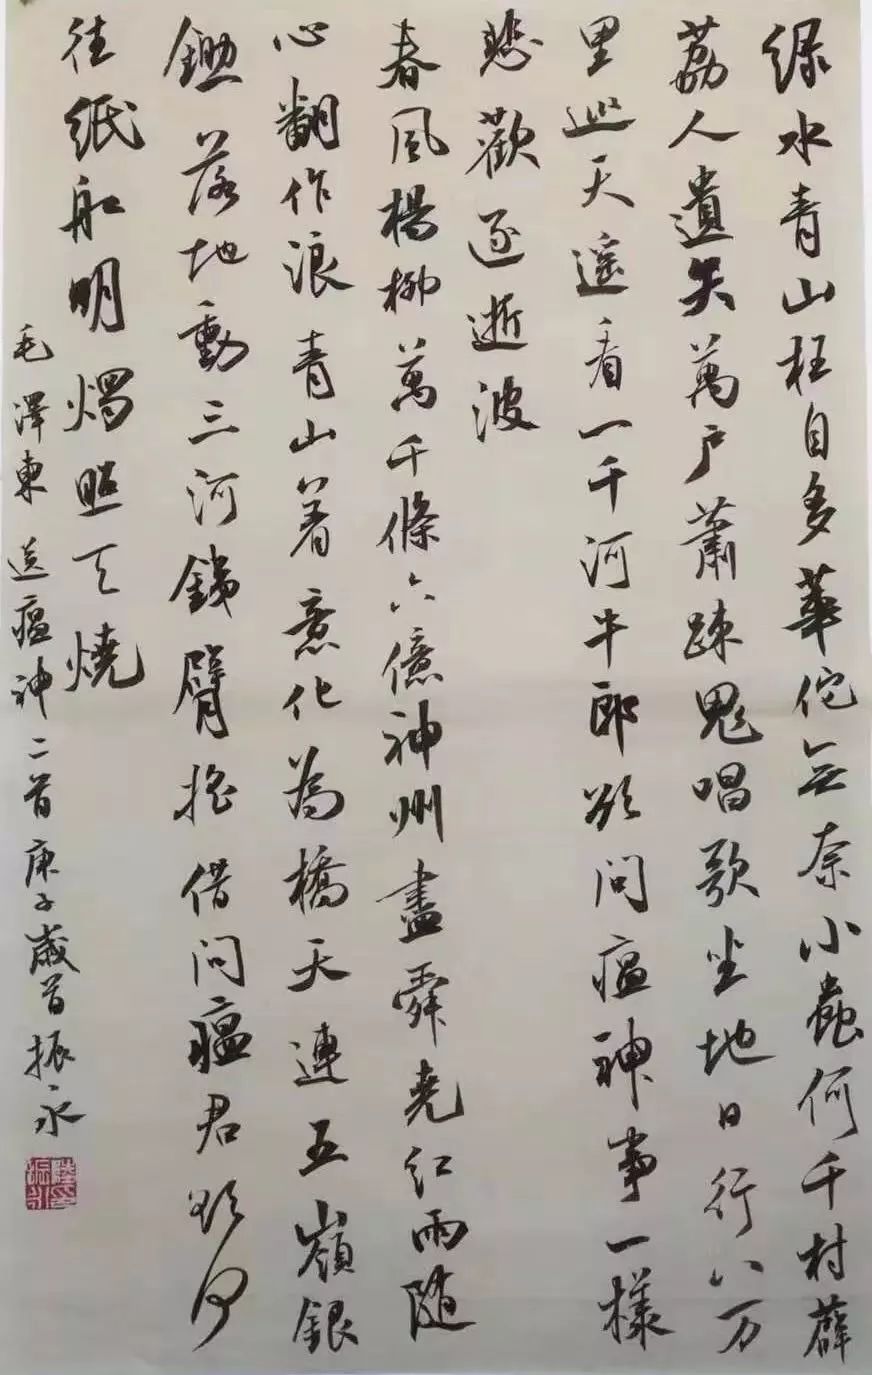 绿水青山枉自多華佗無奈小蟲何千村薜
荔人遺矢萬户蕭疎鬼唱歌坐地日行八万
里巡天遥看一千河牛郎欲问瘟神事一樣
悲歡逐逝波
春風楊柳萬千條六億神州盡舜堯红雨随
心翻作浪青山着意化為橋天連五嶺銀
鋤落地動三河鐵臂摇借问瘟君欲何
往纸船明燭照天燒
毛澤東送瘟神二首庚子歲首振永